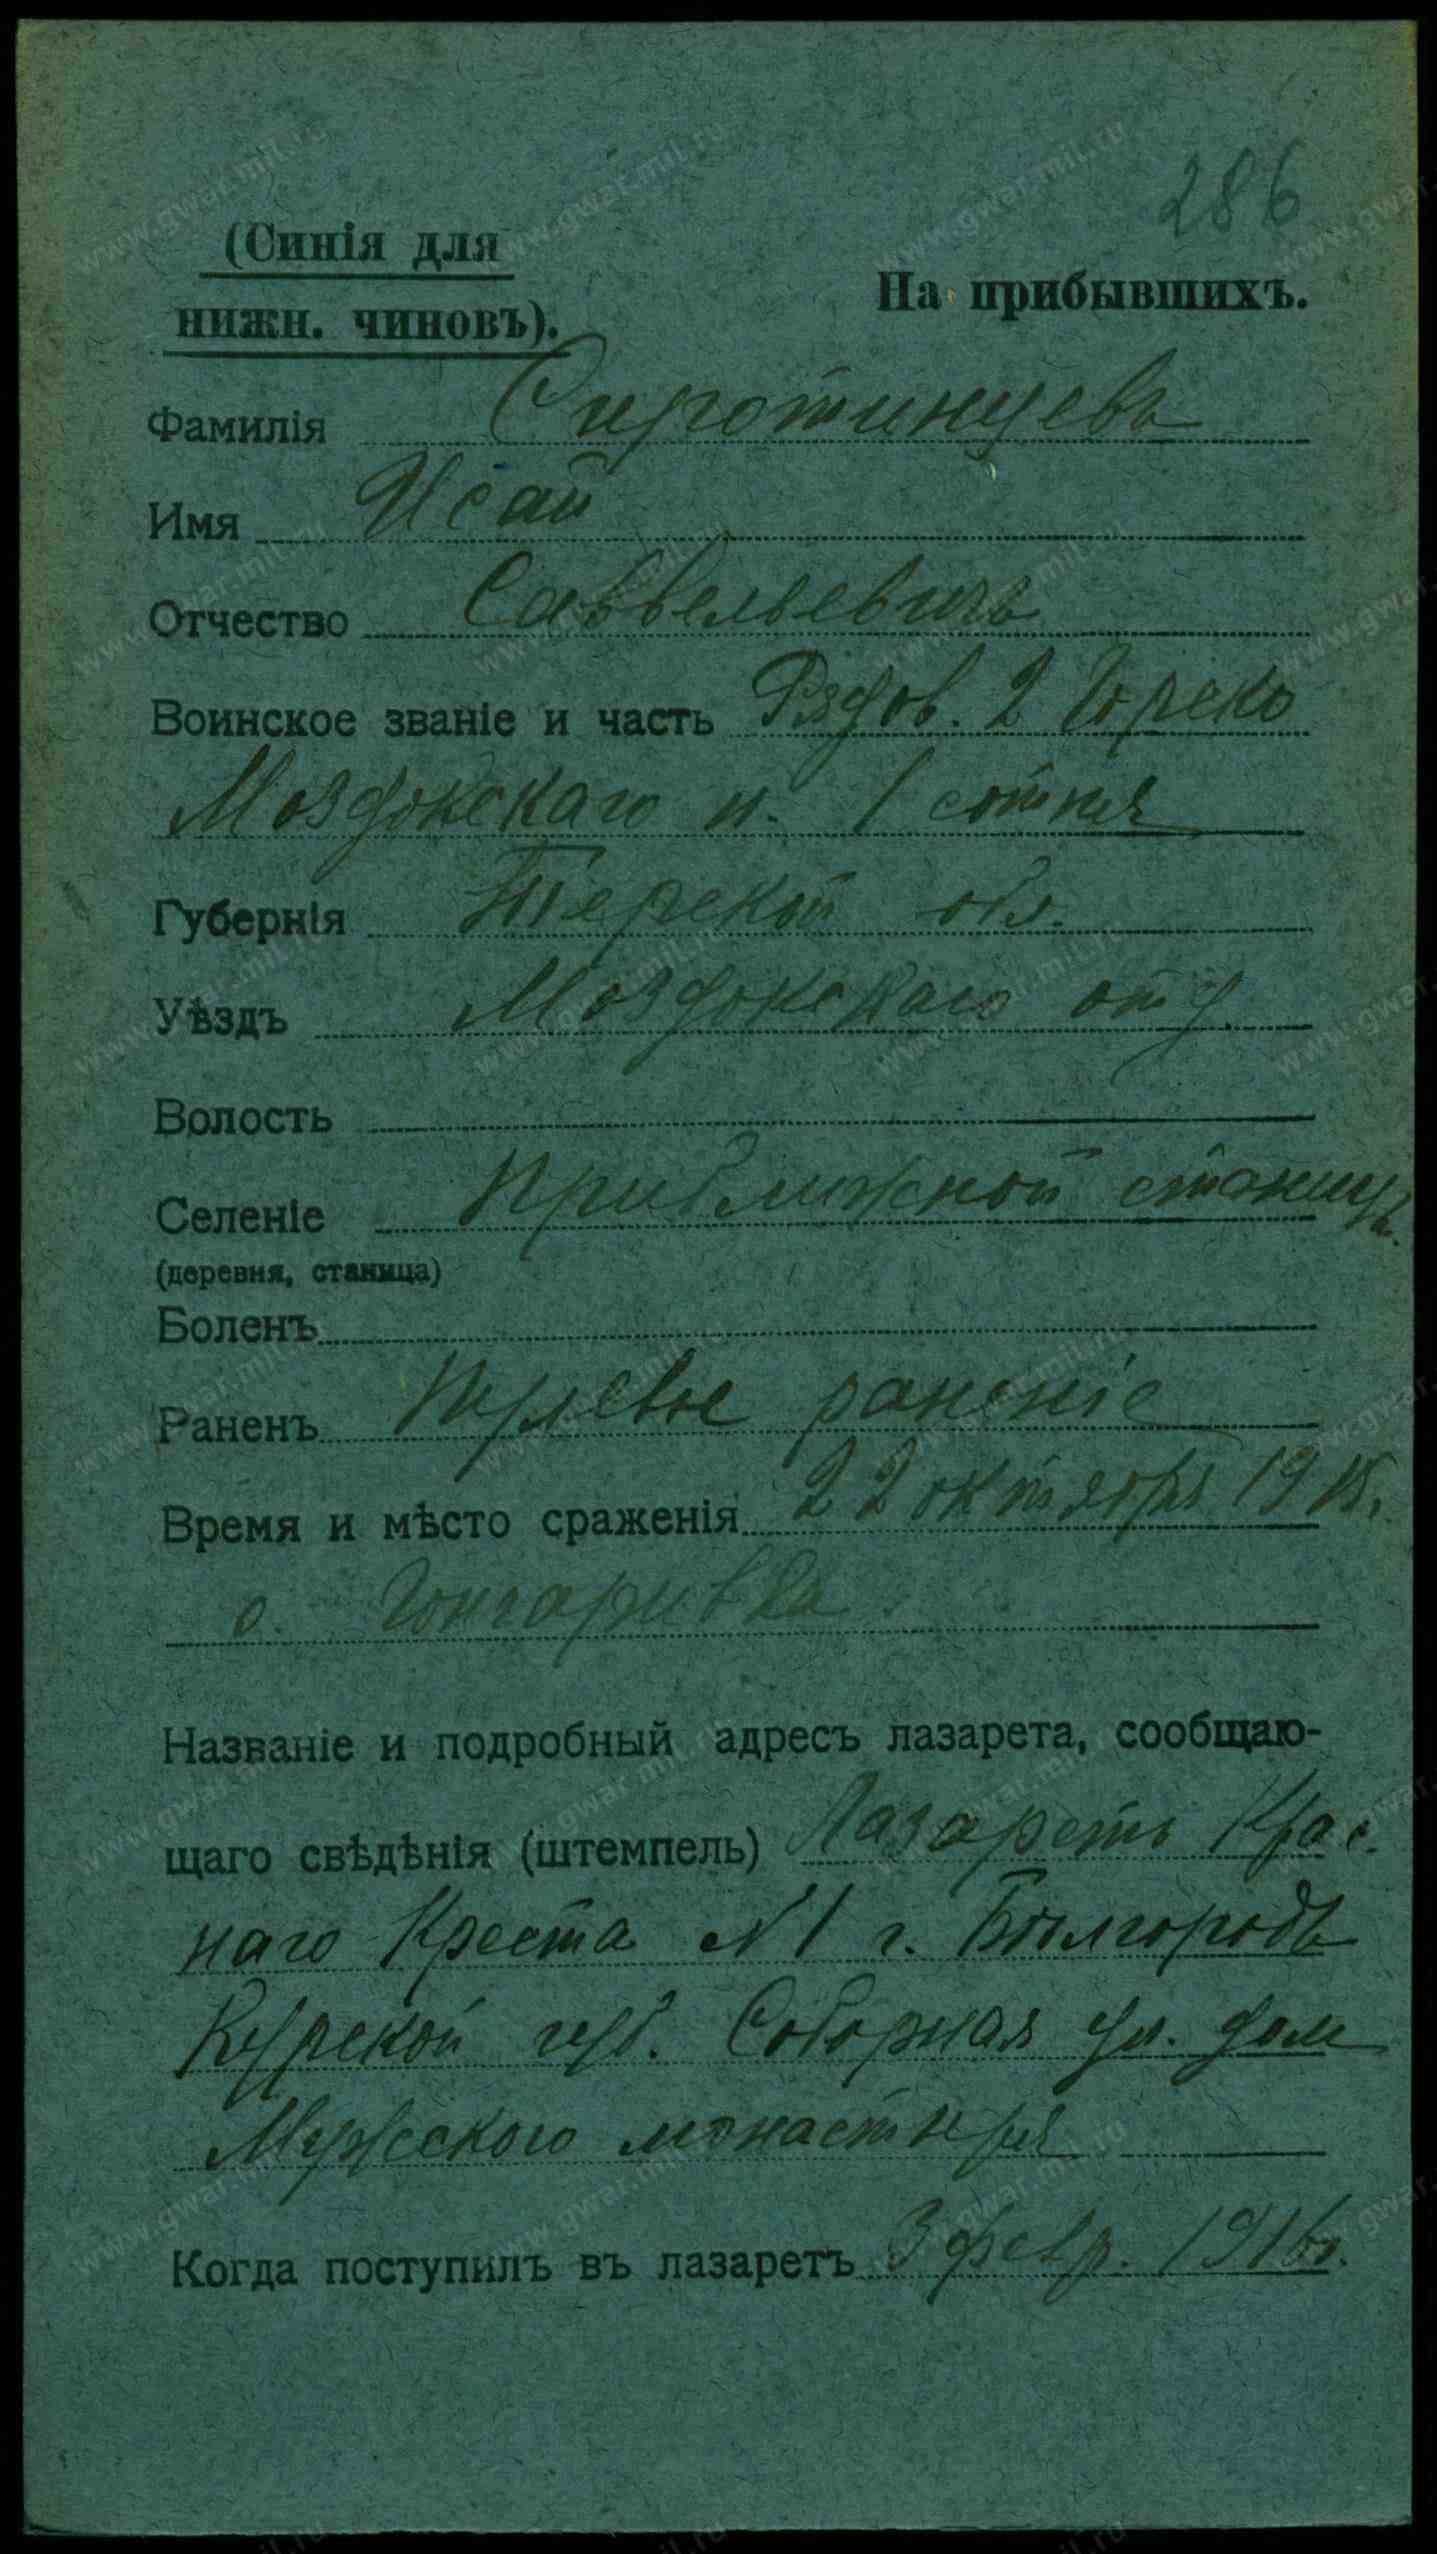 286
(Синія для
нижн. чиновъ).
На прибывшихъ.
Фамилія Сиротинцевъ
Имя Исай
Отчество Саввельевичъ
Воинское званіе и часть Рядов. 2 Горско
Моздокскаго п. 1 сотня
Губернія Терской обл.
Уѣздъ Моздокскаго отд.
Волость
Селеніе Приближной станицы.
(деревня, станица)
Боленъ
Раненъ Пулевое раненіе
Время и мѣсто сраженія 22 октября 1915.
Названіе и подробный адресъ лазарета, сообщаю-
щаго свѣдѣнія (штемпель) Лазаретъ Крас-
наго Креста № 1 г. Бѣлгородъ
Курской губ. Соборная ул. дом
Мужского монастыря
Когда поступилъ въ лазаретъ 3 февр. 1916 г.
www.gwar.mil.ru